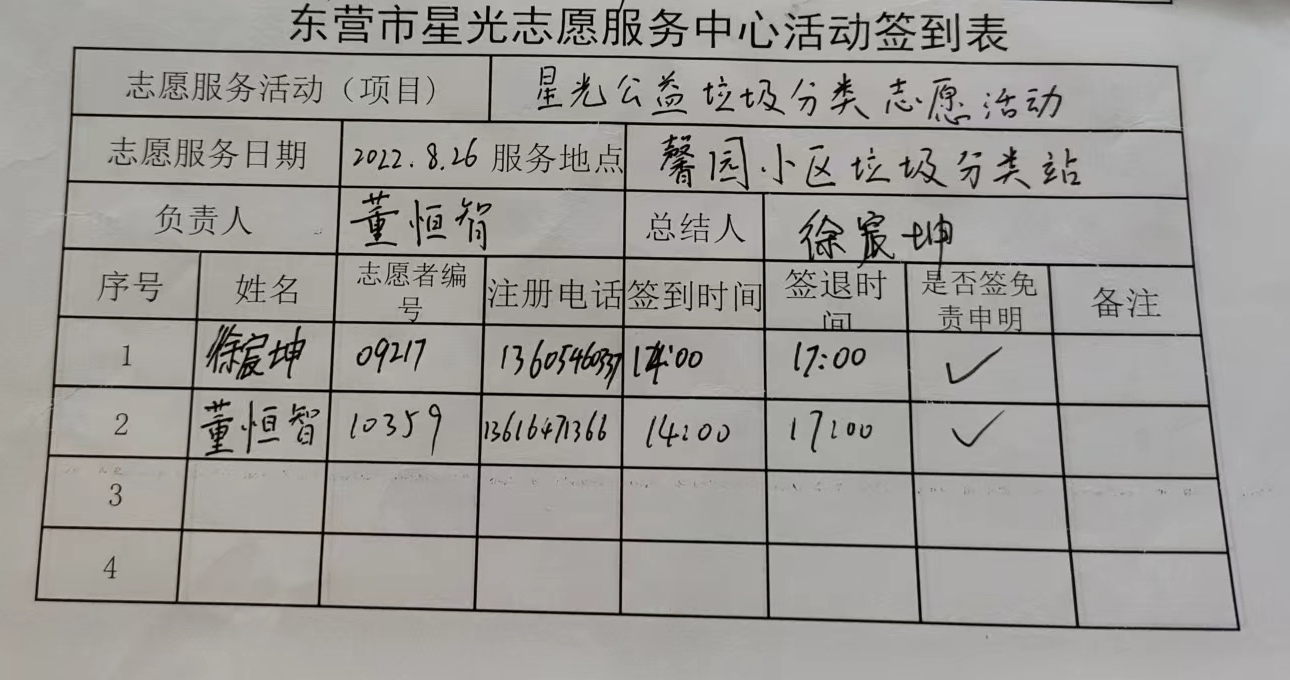 东营市星光志愿服务中心活动签到表
志愿服务活动（项目） 星光公益垃圾分类志愿活动
志愿服务日期 2022.8.26 服务地点 馨园小区垃圾分类站
负责人 董恒智 总结人 徐宸坤
序号 姓名 志愿者编号 注册电话 签到时间 签退时间 是否签免责申明 备注
1 徐宸坤 09217 13605460337 14:00 17:00 ✓
2 董恒智 10359 13616471366 14:00 17:00 ✓
3
4